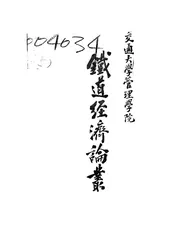 交通大學管理學院
鐵道經濟論叢